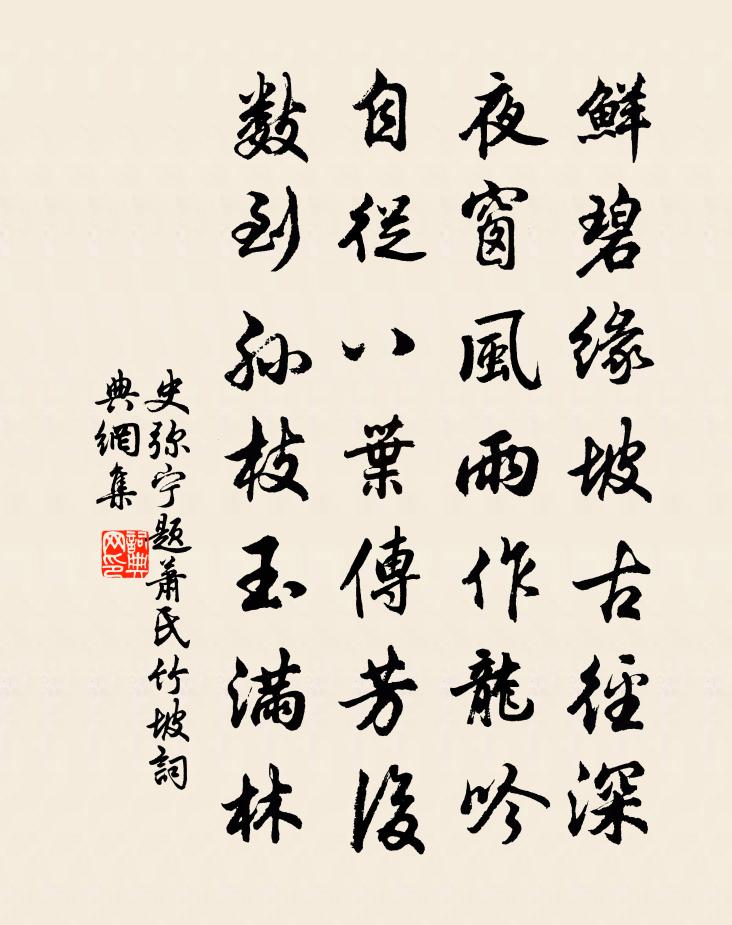 鮮碧緣坡古徑深
夜窗風雨作龍吟
自從八葉傳芳後
數到孙枝玉滿林
史弥宁题蕭氏竹坡詞
典網集
詞典
网印